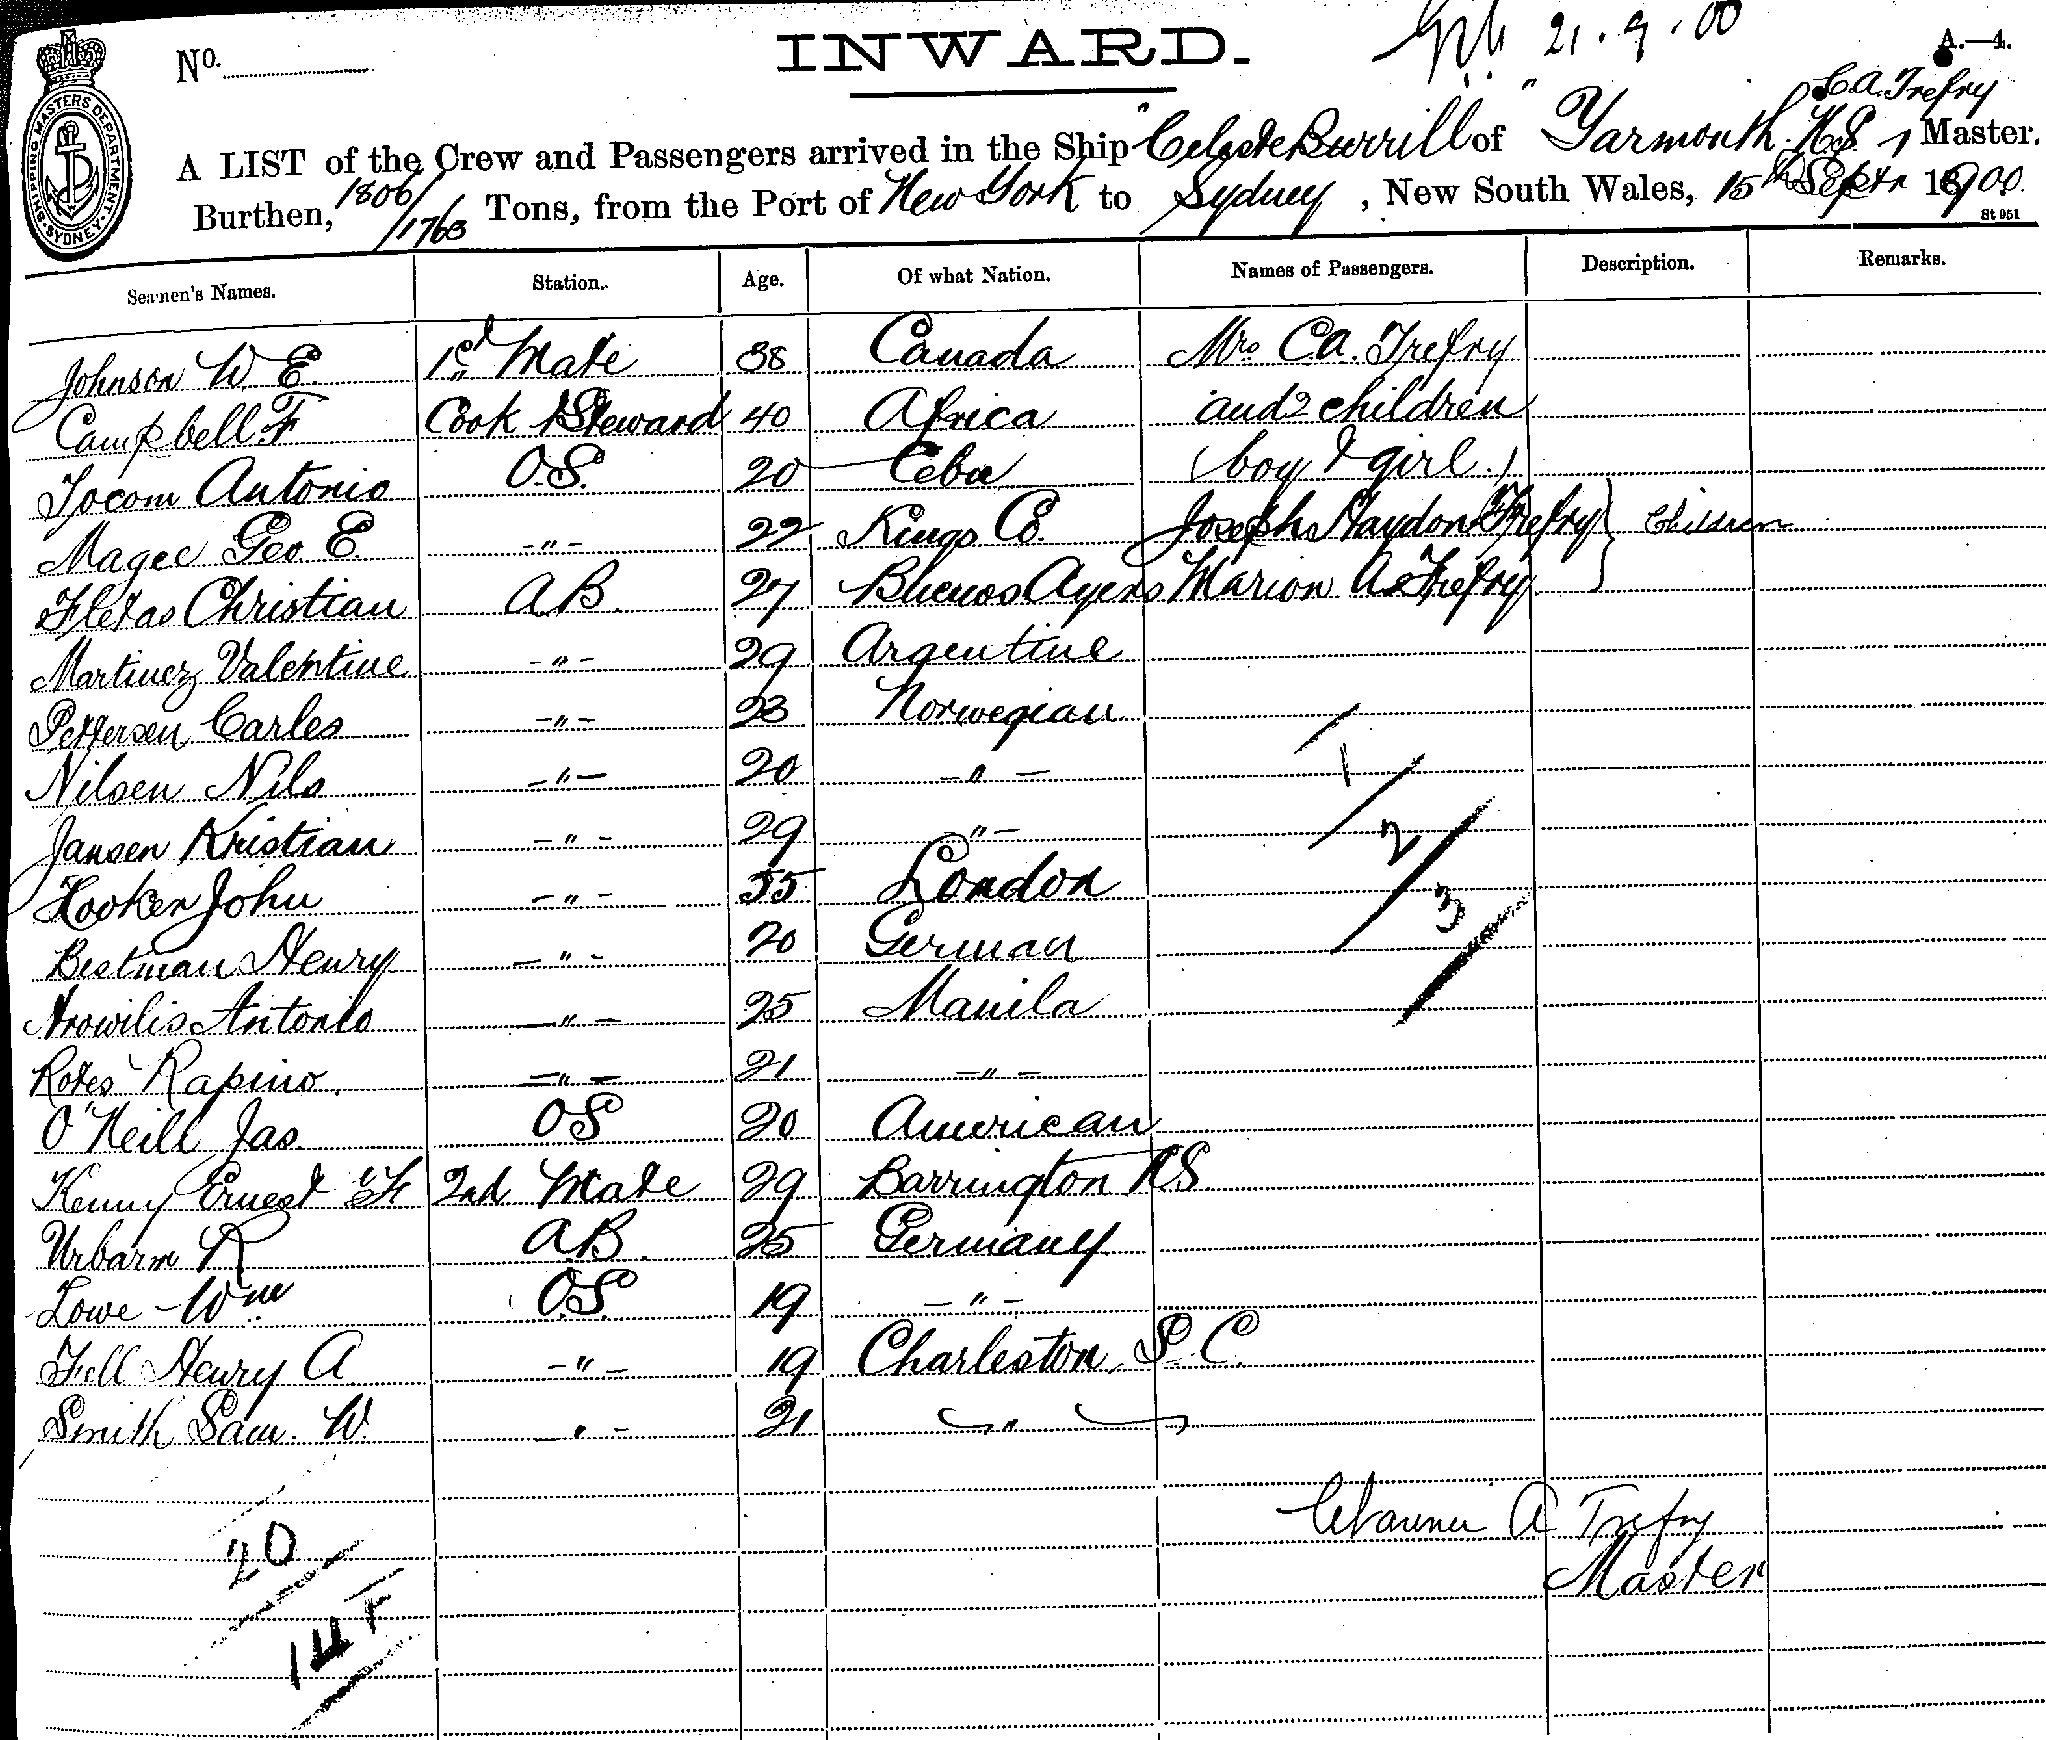 No.
INWARD.
21.9.00
A.—4.
SHIPPING MASTERS DEPARTMENT
SYDNEY
C.A. Trefry
A LIST of the Crew and Passengers arrived in the Ship "Celeste Burrill" of Yarmouth N.S., Master.
Burthen, 1806/1763 Tons, from the Port of New York to Sydney, New South Wales, 15th Septr 1900.
St 951
Seamen's Names. Station. Age. Of what Nation. Names of Passengers. Description. Remarks.
Johnson W. E. 1st Mate 38 Canada Mrs C.A. Trefry
Campbell F Cook & Steward 40 Africa and 2 children
Jocom Antonio O.S. 20 Ceba (boy & girl.)
Magee Geo. E. -"- 22 Kings Co. Joseph Haydon Trefry } Children
Fletas Christian A.B. 27 Bhenos Ayers Marion A. Trefry
Martinez Valentine -"- 29 Argentine
Pettersen Carles -"- 23 Norwegian
Nilsen Nils -"- 20 -"-
1
Jansen Kristian -"- 29 "-
2
Hooker John -"- 55 London
3
Bestman Henry -"- 20 German
Antonio -"- 25 Manila
Rotes Rapino. -"- 21 -"-
O'Neill Jas. OS 20 American
Kenny Ernest F 2nd Mate 29 Barrington N.S.
Urbarm R A.B. 25 Germany
Lowe Wm O.S. 19 -"-
Fell Henry A. -"- 19 Charleston, S.C.
Smith Sam. W. -"- 21 "
A Trefry
Master
20
14 F